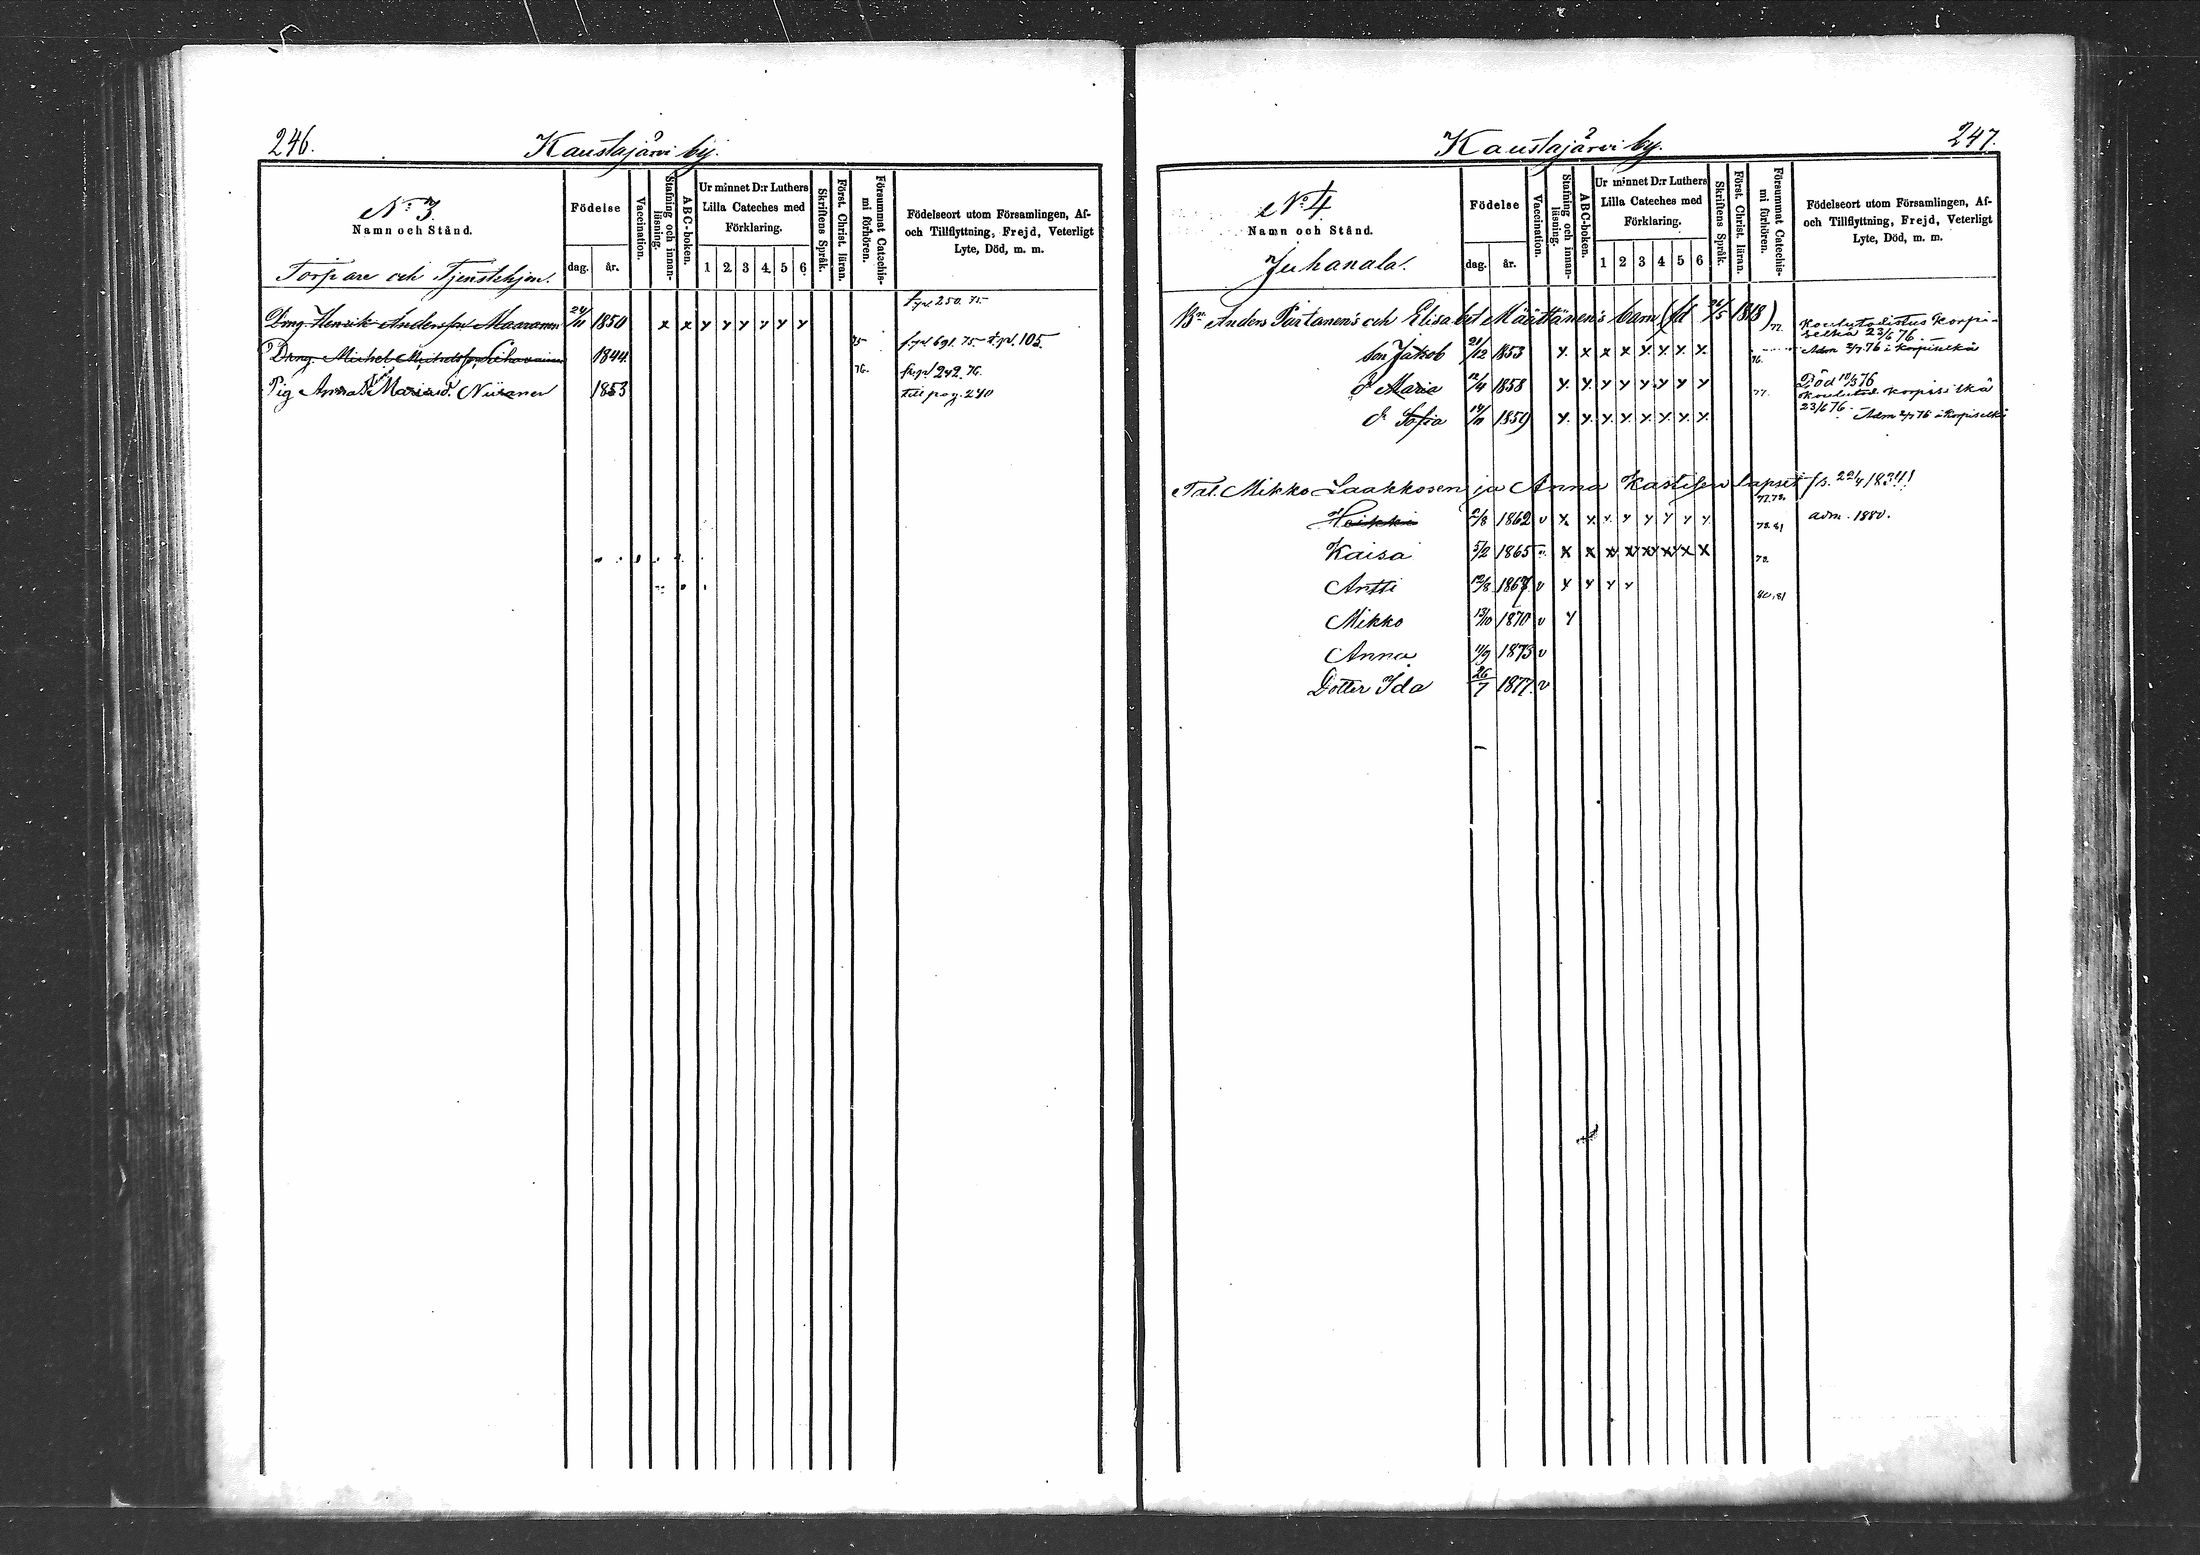 246.
Kaustajärvi by.
No 3.
Namn och Stånd.
Torpare och Tjenstehjon.
Födelse
dag. år.
Vaccination.
Stafning och innanläsning.
ABC-boken.
Ur minnet D:r Luthers
Lilla Cateches med
Förklaring.
1 2 3 4 5 6
Skriftens Språk.
Först. Christ. läran.
Försummat Catechismi förhören.
Födelseort utom Församlingen, Af-
och Tillflyttning, Frejd, Veterligt
Lyte, Död, m. m.
250. 75
Dräng Henrik Andersson Maaranen 24/11 1850 x x y y y y y y
Dräng Michel Michelsson 1844 75 691. 75 105
76. 242. 76.
Pig Anna Maria Niiranen 1853 till pag. 240
Kaustajärvi by.
247.
No 4.
Namn och Stånd.
Juhanala.
Födelse
dag. år.
Vaccination.
Stafning och innanläsning.
ABC-boken.
Ur minnet D:r Luthers
Lilla Cateches med
Förklaring.
1 2 3 4 5 6
Skriftens Språk.
Först. Christ. läran.
Försummat Catechismi förhören.
Födelseort utom Församlingen, Af-
och Tillflyttning, Frejd, Veterligt
Lyte, Död, m. m.
Bn Anders Partanen's och Elisabet Määttänen's barn (fd 26/5 1818) 77. Koulutodistus Korpi-
selkä 23/6 76.
Son Jakob 21/12 1853 y. x x x y. y. y. y. 76. Adm 2/7 76 i Korpiselkä
dr Maria 12/4 1858 y. y. y y y y y y 77. Död 76
Korpiselkä
dr Sofia 14/11 1859 y. y. y. y. y. y. y. y. 23/6 76. Adm 2/7 76 i Korpiselkä
Tal. Mikko Laakkosen ja Anna Kastisen lapset fs. 22/4 1834!
77.78.
Heikki 2/8 1862 v y. y. y. y y y y y. 78.81 adm. 1880.
Kaisa 5/2 1865 v. x x x x x x x x 78.
Antti 12/8 1867 v y y y y 80,81
Mikko 13/10 1870 v y
Anna 11/9 1873 v
Dotter Ida 26/7 1877. v